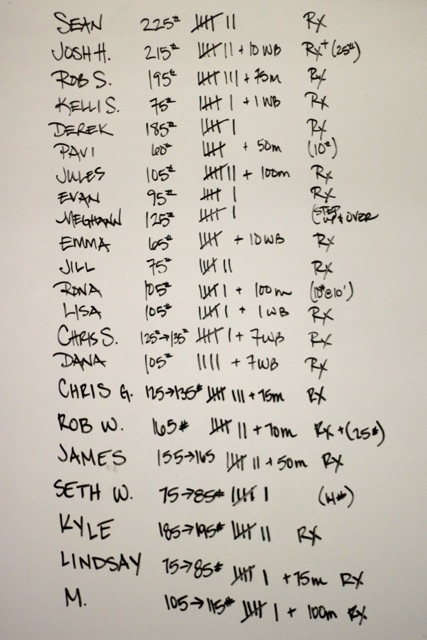 SEAN 225# 卌 II RX
JOSH H. 215# 卌 II + 10 WB RX+ (25#)
ROB S. 195# 卌 III + 75m RX
KELLI S. 75# 卌 I + 1 WB RX
DEREK 185# 卌 I RX
PAVI 60# 卌 + 50m (10#)
JULES 105# 卌 II + 100m RX
EVAN 95# 卌 I RX
MEGHANN 125# 卌 I (STEP UP & OVER
EMMA 65# 卌 + 10 WB RX
JILL 75# 卌 II RX
RONA 105# 卌 I + 100m (10#@10')
LISA 105# 卌 I + 1 WB RX
CHRIS S. 125#→135# 卌 I + 7 WB RX
DANA 105# IIII + 7 WB RX
CHRIS G. 125→135# 卌 III + 75m RX
ROB W. 165# 卌 II + 70m RX + (25#)
JAMES 155→165 卌 II + 50m RX
SETH W. 75→85# 卌 I (14#)
KYLE 185→195# 卌 II RX
LINDSAY 75→85# 卌 I + 75m RX
M. 105→115# 卌 I + 100m RX